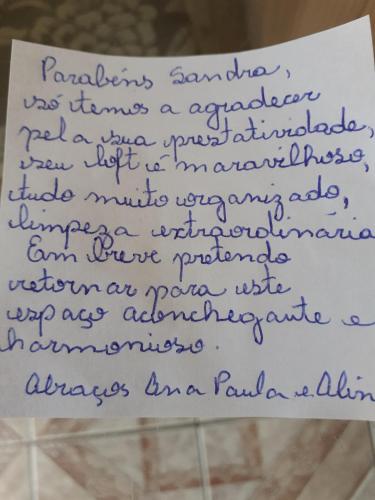 Parabéns Sandra,
só temos a agradecer
pela sua prestatividade,
seu loft é maravilhoso,
tudo muito organizado,
limpeza extraordinária
Em breve pretendo
retornar para este
espaço aconchegante e
harmonioso.
Abraços Ana Paula e Alin